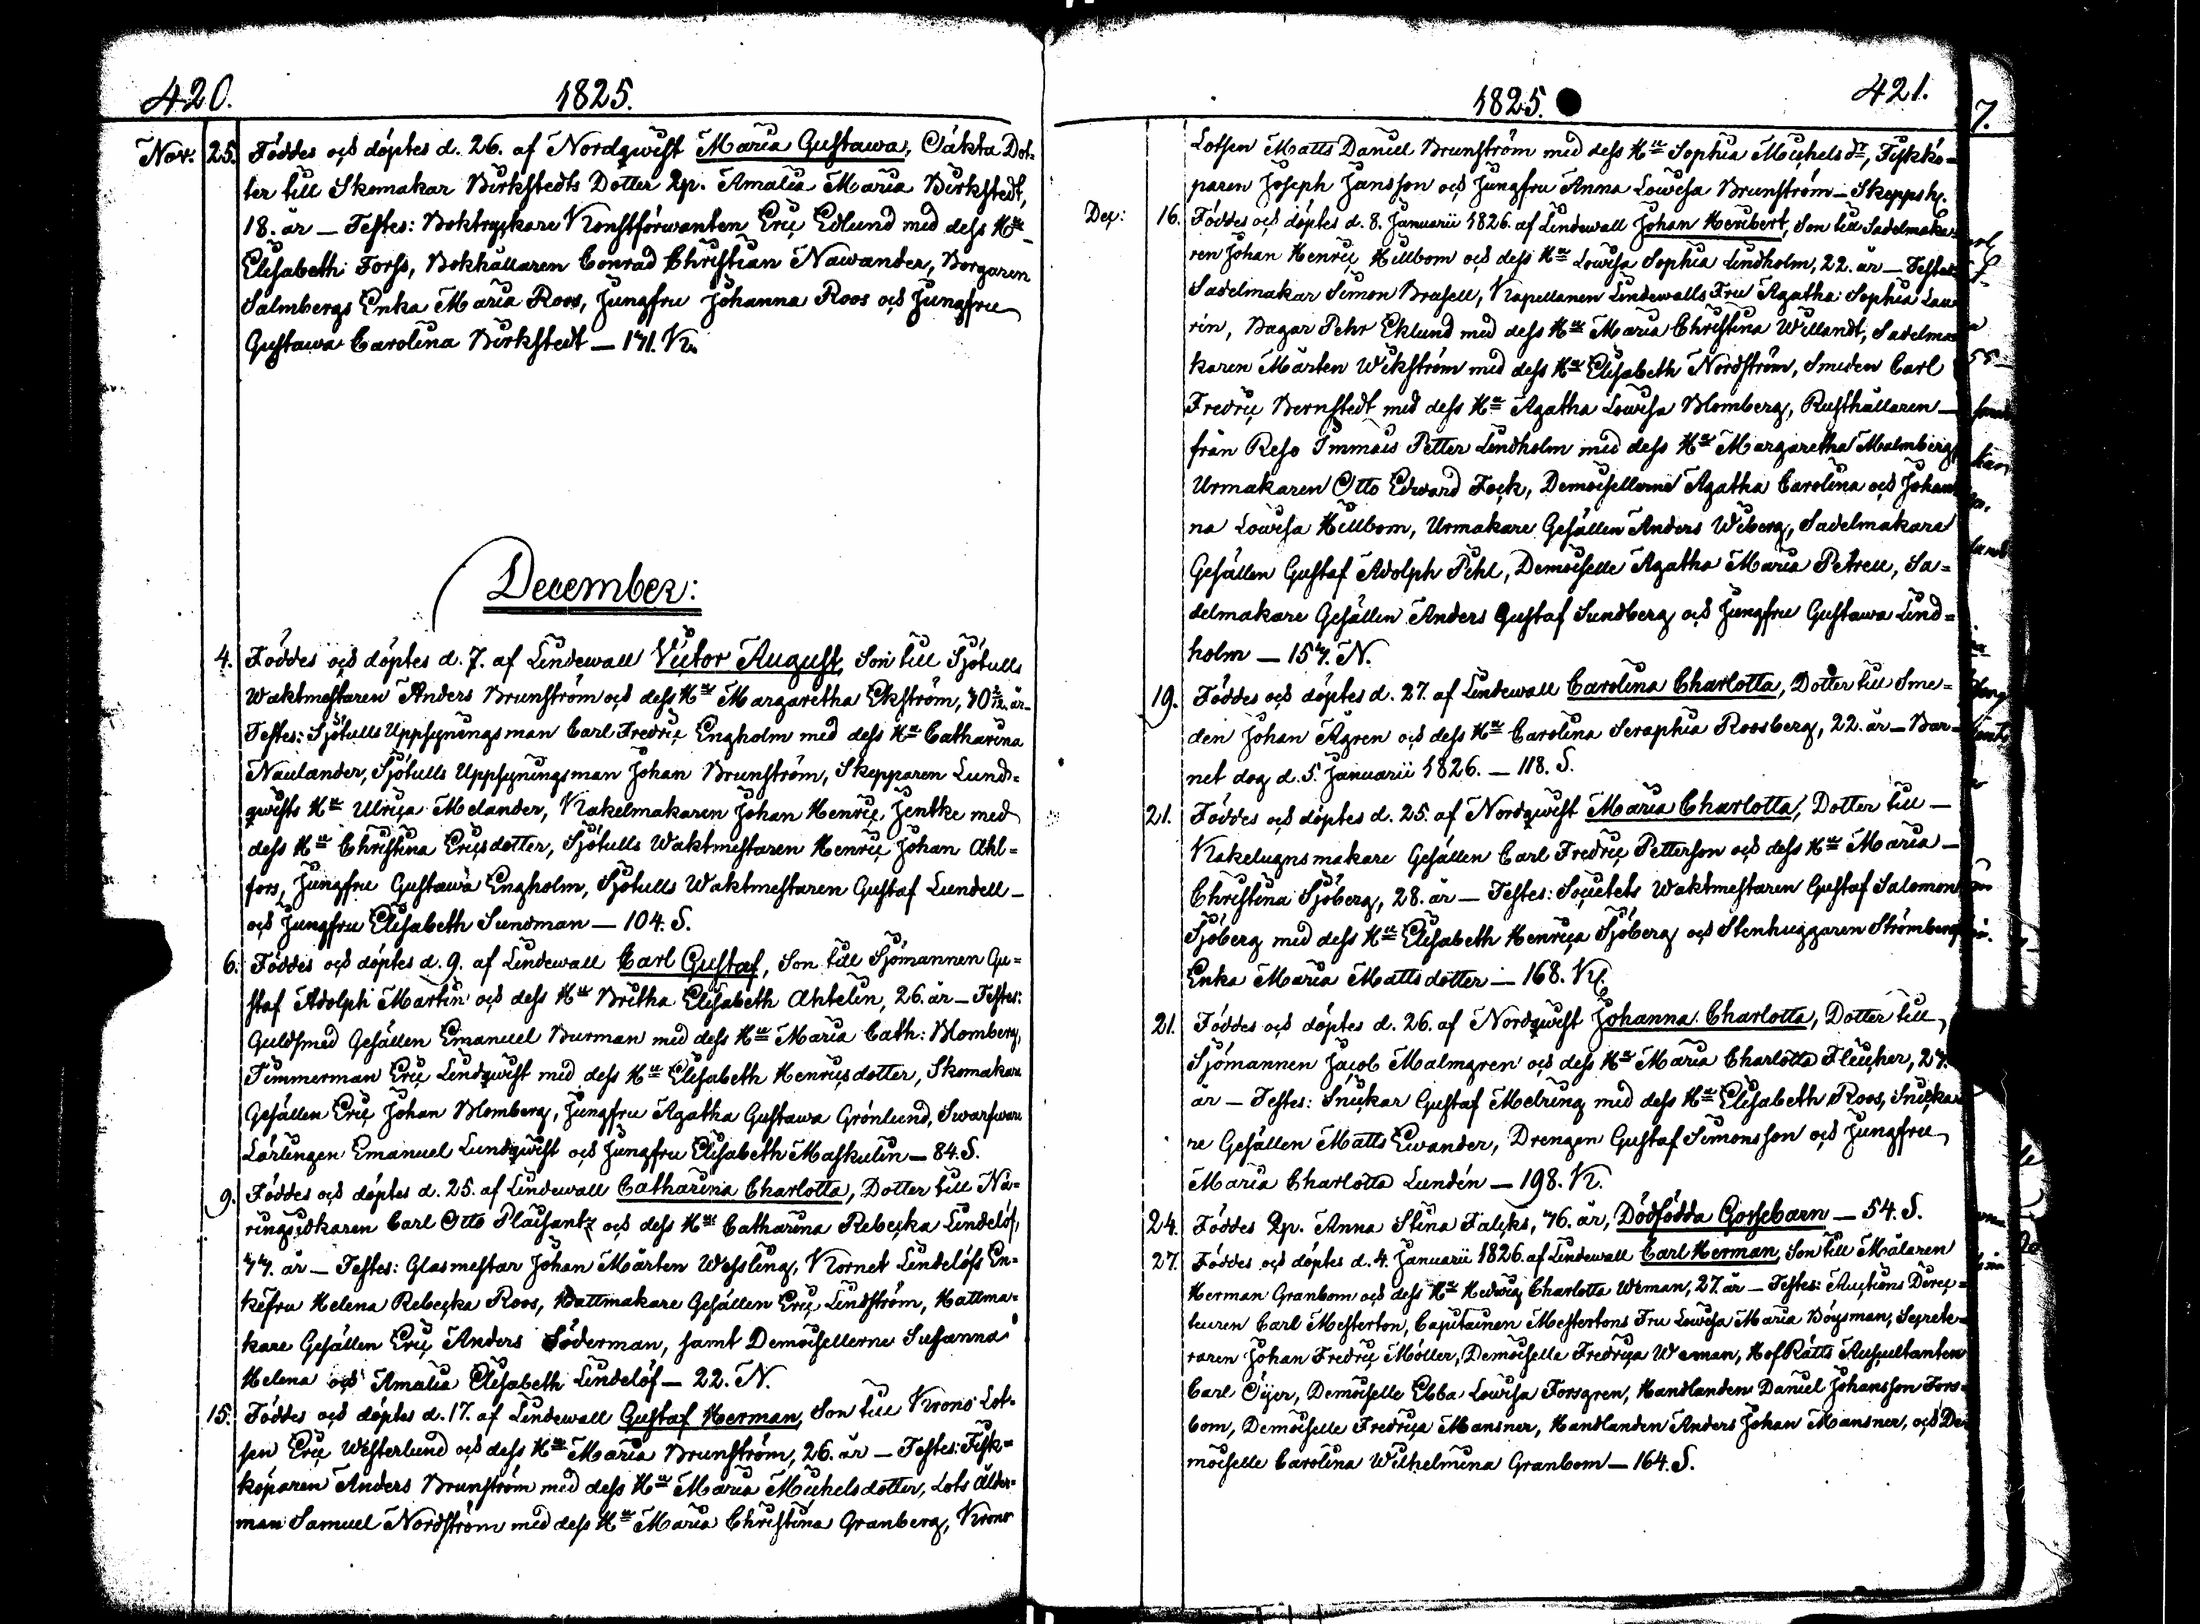 420. 1825.
Nov. 25. Föddes och döptes d. 26. af Nordqwist Maria Gustawa, Oäkta Dot-
ter till Skomakar Birkstedts Dotter Qp. Amalia Maria Birkstedt,
18. år — Testes: Boktryckare Konstförwanten Eric Edlund med dess Hu
Elisabeth Forss, Bokhållaren Conrad Christian Nawander, Borgaren
Salmbergs Enka Maria Roos, Jungfru Johanna Roos och Jungfru
Gustawa Carolina Birkstedt — 171. K.
December:
4. Föddes och döptes d. 7. af Lindewall Victor August, Son till Sjötulls
Waktmestaren Anders Brunström och dess Hu Margaretha Ekström, år —
Testes: Sjötulls Uppsyningsman Carl Fredric Engholm med dess Hu Catharina
Naulander, Sjötulls Uppsyningsman Johan Brunström, Skepparen Lund-
qwists Hu Ulrica Melander, Kakelmakaren Johan Henric Jentke med
dess Hu Christina Ericsdotter, Sjötulls Waktmestaren Henric Johan Ahl-
fors, Jungfru Gustawa Engholm, Sjötulls Waktmestaren Gustaf Lundell —
och Jungfru Elisabeth Sundman — 104. S.
6. Föddes och döptes d. 9. af Lindewall Carl Gustaf, Son till Sjömannen Gu-
staf Adolph Martin och dess Hu Britha Elisabeth Ahtelin, 26. år — Testes:
Guldsmed Gesällen Emanuel Burman med dess Hu Maria Cath: Blomberg,
Timmerman Eric Lindqwist med dess Hu Elisabeth Henricsdotter, Skomakare
Gesällen Eric Johan Blomberg, Jungfru Agatha Gustawa Grönlund, Swarfware
Lärlingen Emanuel Lundqwist och Jungfru Elisabeth Maskulin — 84. S.
9. Föddes och döptes d. 25. af Lindewall Catharina Charlotta, Dotter till Nä-
ringsidkaren Carl Otto Plaisantz och dess Hu Catharina Rebecka Lindelöf,
år — Testes: Glasmestar Johan Mårten Wessling, Kornet Lindelöfs En-
kefru Helena Rebecka Roos, Hattmakare Gesällen Eric Lindström, Hattma-
kare Gesällen Eric Anders Söderman, samt Demoisellerne Susanna
Helena och Amalia Elisabeth Lindelöf — 22. N.
15. Föddes och döptes d. 17. af Lindewall Gustaf Herman, Son till Krono Lot-
sen Eric Westerlund och dess Hu Maria Brunström, 26. år — Testes: Fisk-
köparen Anders Brunström med dess Hu Maria Michelsdotter, Lots Ålder-
man Samuel Nordström med dess Hu Maria Christina Granberg, Krono
1825. 421.
Lotsen Matts Daniel Brunström med dess Hu Sophia Michels dr, Fiskkö-
paren Joseph Jansson och Jungfru Anna Lowisa Brunström — Skeppsh.
Dec: 16. Föddes och döptes d. 8. Januarii 1826. af Lindewall Johan Heribert, Son till Sadelmaka-
ren Johan Henric Hillbom och dess Hu Lowisa Sophia Lindholm, 22. år — Testes:
Sadelmakar Simon Brusell, Kapellanen Lindewalls Fru Agatha Sophia Lau-
rin, Bagar Pehr Eklund med dess Hu Maria Christina Willandt, Sadelma-
karen Mårten Wikström med dess Hu Elisabeth Nordström, Smeden Carl
Fredric Bernstedt med dess Hu Agatha Lowisa Blomberg, Rusthållaren —
från Reso Immais Petter Lindholm med dess Hu Margaretha Malmberg,
Urmakaren Otto Edward Fock, Demoisellerne Agatha Carolina och Johan-
na Lowisa Hillbom, Urmakare Gesällen Anders Wiberg, Sadelmakare
Gesällen Gustaf Adolph Pihl, Demoiselle Agatha Maria Petrell, Sa-
delmakare Gesällen Anders Gustaf Sundberg och Jungfru Gustawa Lind-
holm — 157. N.
19. Föddes och döptes d. 27. af Lindewall Carolina Charlotta, Dotter till Sme-
den Johan Ågren och dess Hu Carolina Seraphia Roosberg, 22. år — Bar-
net dog d. 5. Januarii 1826. — 118. S.
21. Föddes och döptes d. 25. af Nordqwist Maria Charlotta, Dotter till —
Kakelugnsmakare Gesällen Carl Fredric Petterson och dess Hu Maria —
Christina Sjöberg, 28. år — Testes: Societets Waktmestaren Gustaf Salomon
Sjöberg med dess Hu Elisabeth Henrica Sjöberg och Stenhuggaren Strömbergs
Enka Maria Mattsdotter — 168. Kl.
21. Föddes och döptes d. 26. af Nordqwist Johanna Charlotta, Dotter till
Sjömannen Jacob Malmgren och dess Hu Maria Charlotta Fleicher, 27.
år — Testes: Snickar Gustaf Melring med dess Hu Elisabeth Roos, Snicka-
re Gesällen Matts Ewander, Drengen Gustaf Simonsson och Jungfru
Maria Charlotta Lundén — 198. K.
24. Föddes Qp. Anna Stina Falcks, år, Dödfödda Gossebarn — 54. S.
27. Föddes och döptes d. 4. Januarii 1826. af Lindewall Carl Herman, Son till Målaren
Herman Granbom och dess Hu Hedwig Charlotta Wiman, 27. år — Testes: Auctions Direc-
teuren Carl Mesterton, Capitainen Mestertons Fru Lowisa Maria Böysman, Secrete-
raren Johan Fredric Möller, Demoiselle Fredrica Wiman, HofRätts Auscultanten
Carl Öijer, Demoiselle Ebba Lowisa Forsgren, Handlanden Daniel Johansson Fors-
bom, Demoiselle Fredrica Mansner, Handlanden Anders Johan Mansner, och De-
moiselle Carolina Wilhelmina Granbom — 164. S.